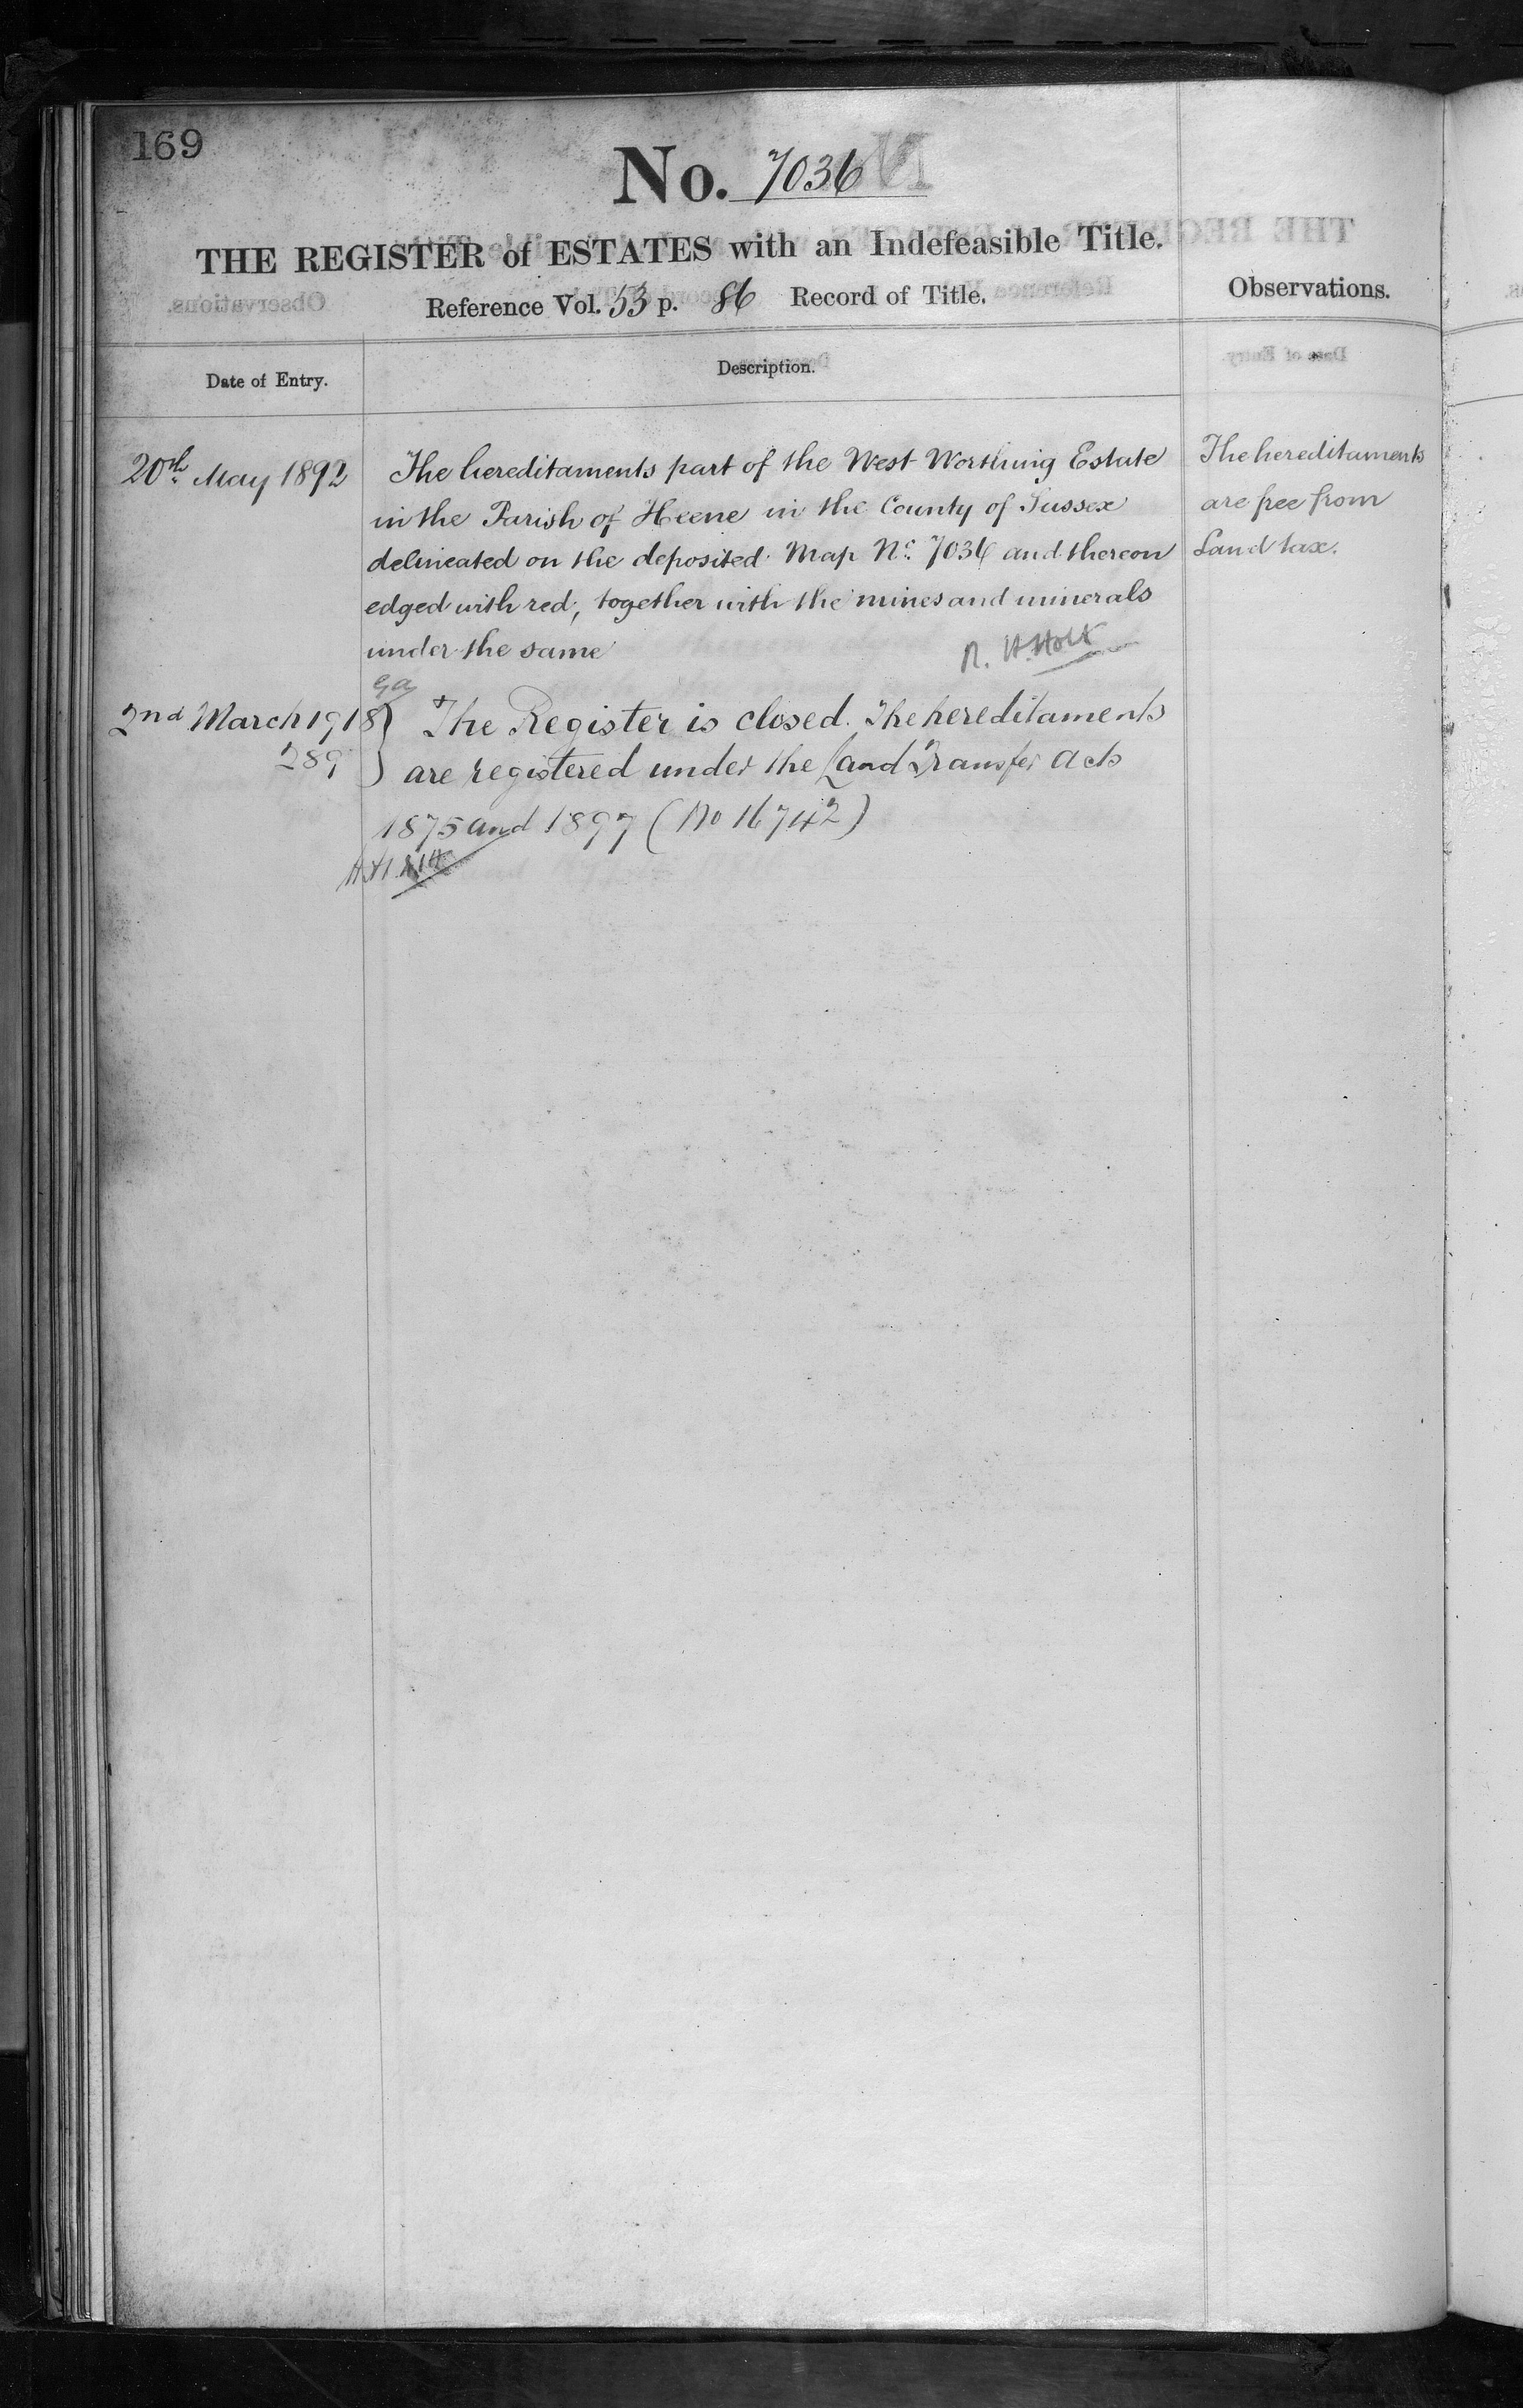 169
No. 7036
THE REGISTER of ESTATES with an Indefeasible Title.
Reference Vol. 53 p. 86 Record of Title.
Observations.
Date of Entry.
Description.
20th May 1892
The hereditaments part of the West Worthing Estate
in the Parish of Heene in the County of Sussex
delineated on the deposited Map No. 7036 and thereon
edged with red, together with the mines and minerals
under the same
R. H. Holt
The hereditaments
are free from
Land tax.
2nd March 1918
289
The Register is closed. The hereditaments
are registered under the Land Transfer Acts
1875 and 1897 (No 16742)